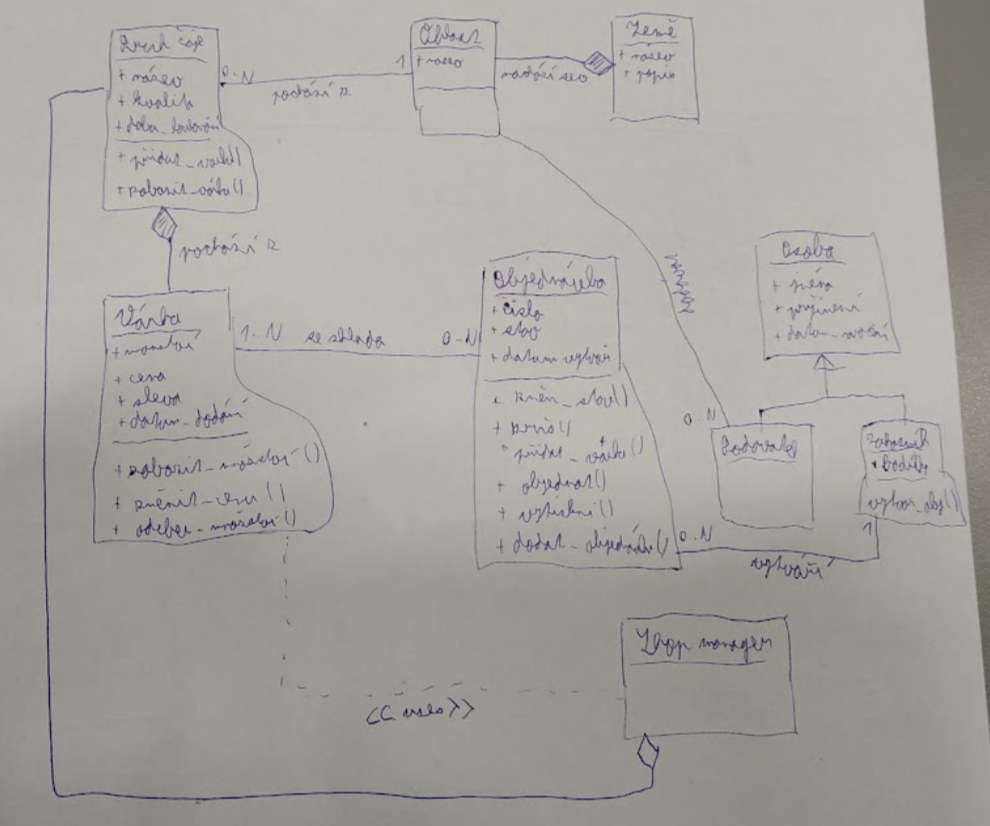 Druh čaje
+ název
+ kvalita
+ doba_louhování
+ přidat_várku()
+ zobrazit_várku()
0..N
pochází z
1
Oblast
+ název
nachází se v
Země
+ název
+ popis
pochází z
Várka
+ množství
+ cena
+ sleva
+ datum_dodání
+ zobrazit_množství()
+ změnit_cenu()
+ odeber_množství()
1..N
se skládá
0..N
Objednávka
+ číslo
+ stav
+ datum_vytvoř
+ změn_stav()
+ přidat_várku()
+ objednat()
+ dodat_objednávku()
Osoba
+ jméno
+ příjmení
+ datum_narození
0..N
Dodavatel
Zákazník
vytvor_obj()
0..N
1
vytváří
Shop manager
<< uses >>